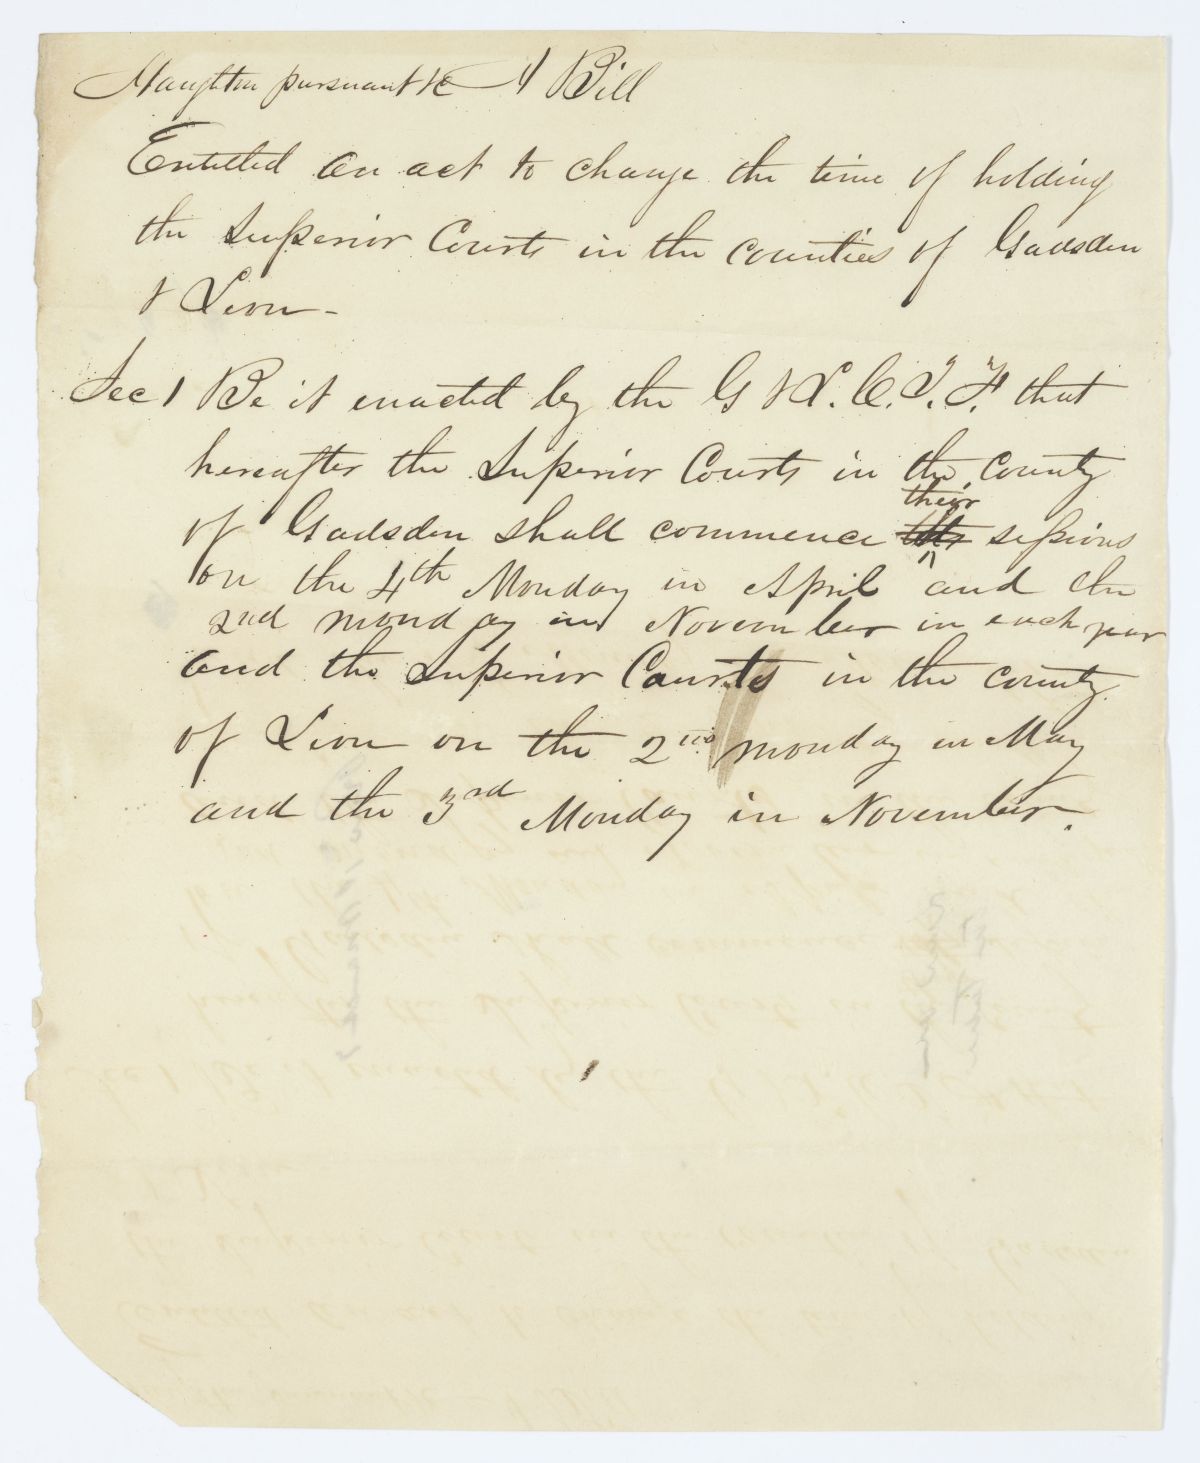 Haughton pursuant &c A Bill
Entitled an act to change the time of holding
the Superior Courts in the counties of Gadsden
& Leon -
Sec 1 Be it enacted by the G & L. C. T. F. that
hereafter the Superior Courts in the county
of Gadsden shall commence their sessions
on the 4th Monday in April and the
2nd monday in November in each year
and the Superior Courts in the county
of Leon on the 2nd monday in May
and the 3rd Monday in November.